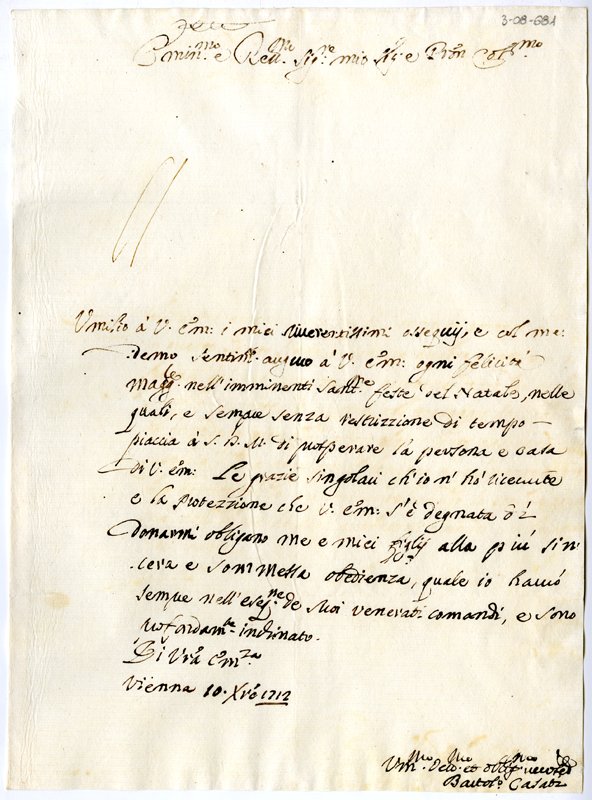 3-08-681
Emin.mo e Rev.mo Sig.re mio Sig.r e Pron Col.mo
Umilio à V. Em: i miei riverentissimi ossequij, e col me:
demo sentim.to auguro à V. Em: ogni felicità
magg.re nell'imminenti Sant.me feste del Natale, nelle
quali, e sempre senza restrizzione di tempo
piaccia à S. D. M. di prosperare la persona e casa
di V. Em: Le grazie singolari ch'io n'hò ricevute
e la Protezzione che V. Em: s'è degnata di
donarmi obligano me e miei figlij alla più sin:
cera e sommessa obedienza, quale io havrò
sempre nell'esec.ne de suoi venerati comandi, e sono
profondam.te inclinato.
Di Vra Em.za
Vienna 10. Xbre 1712
Um.mo Dev.mo et obl.mo servitore
Bartolo